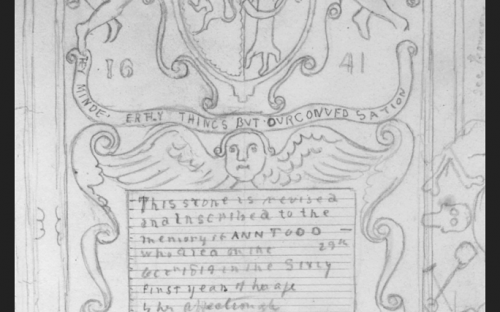 16 41
HEY MINDE · ERTLY THINGS BUT · OVRCONVED SATION
This stone is revised
and Inscribed to the
memory of ANN TODD
who died on the 29th
Octr 1819 in the Sixty
First year of her age